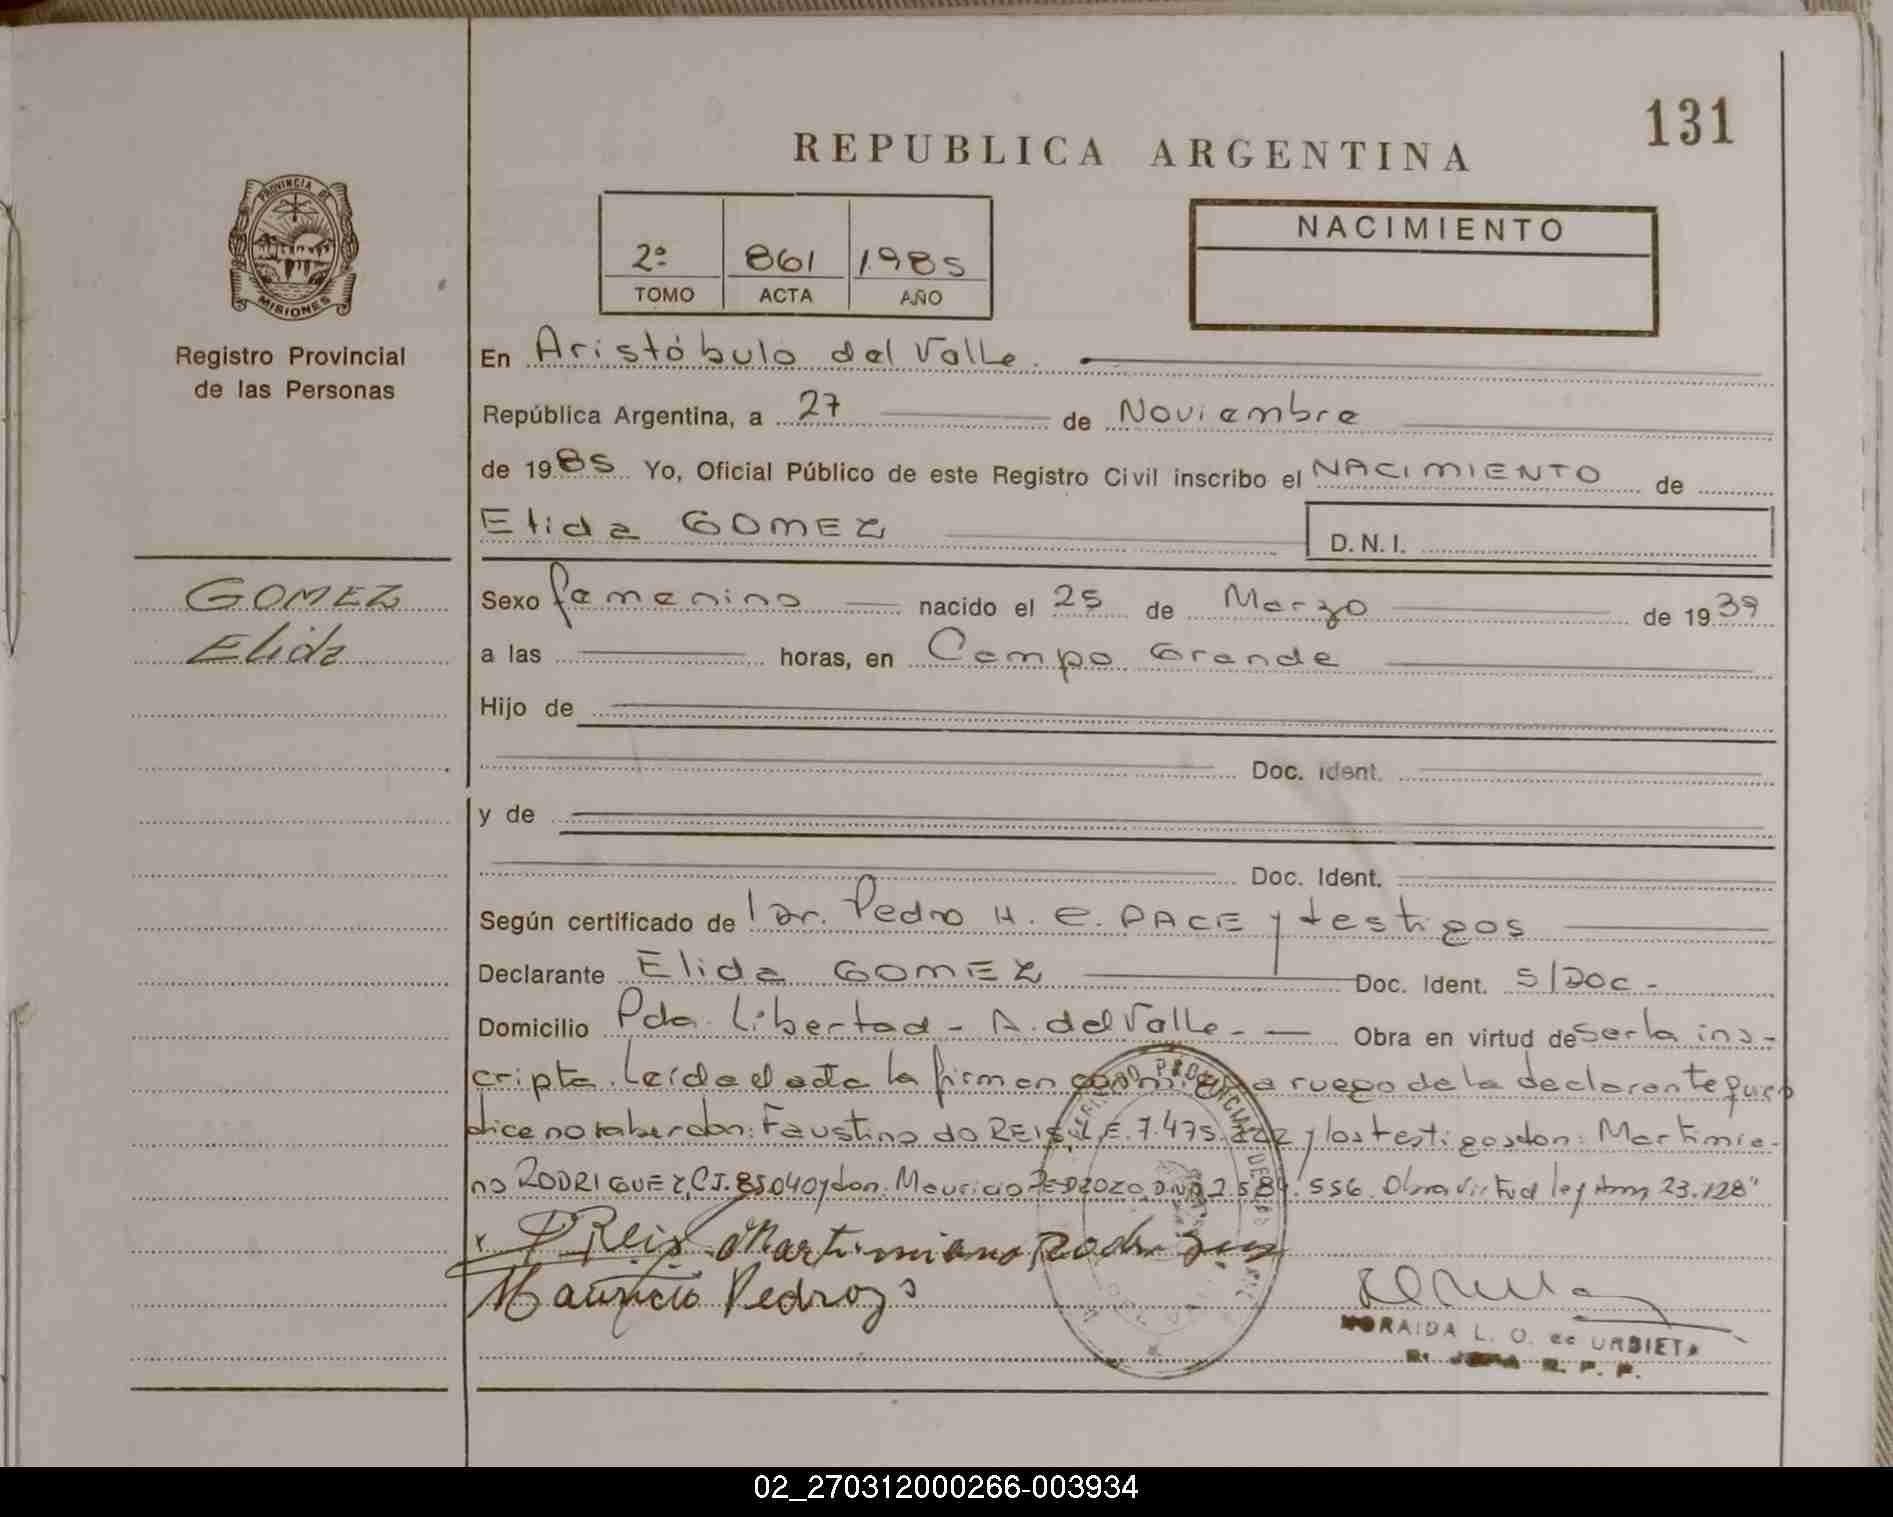 131
REPUBLICA ARGENTINA
PROVINCIA DE
MISIONES
Registro Provincial
de las Personas
2º 861 1.985
TOMO ACTA AÑO
NACIMIENTO
En Aristóbulo del Valle.
República Argentina, a 27 de Noviembre
de 1985 Yo, Oficial Público de este Registro Civil inscribo el NACIMIENTO de
Elida GOMEZ D.N.I.
GOMEZ
Elida
Sexo femenino nacido el 25 de Marzo de 1939
a las horas, en Campo Grande
Hijo de
Doc. ident.
y de
Doc. Ident.
Según certificado de Dr. Pedro H. E. PACE y testigos
Declarante Elida GOMEZ Doc. Ident. S/DOC -
Domicilio Pda. Libertad - A. del Valle - Obra en virtud de ser la ins-
cripta. Leída el acta la firman conmigo a ruego de la declarante que
dice no saber don: Faustino do REIS, L.E. 7.475. y los testigos don: Martimia-
no RODRIGUEZ, C.I. 85040 y don. Mauricio PEDROZO D.N.I 2.584.556. Obra virtud ley 23.128"
Reis Martimiano Rodriguez
Mauricio Pedrozo
NORAIDA L. O. de URBIETA
JEFA R. P. P.
02_270312000266-003934